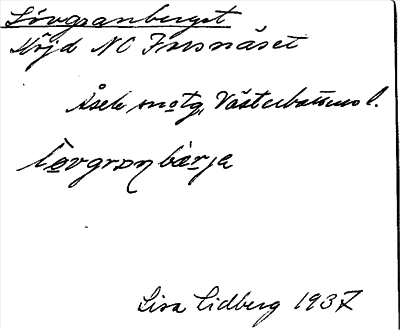 Lövgranberget
Höjd NO Insnäset
Åsele sn o tg, Västerbottens l.
Lövgranbärja
Lisa Lidberg 1937